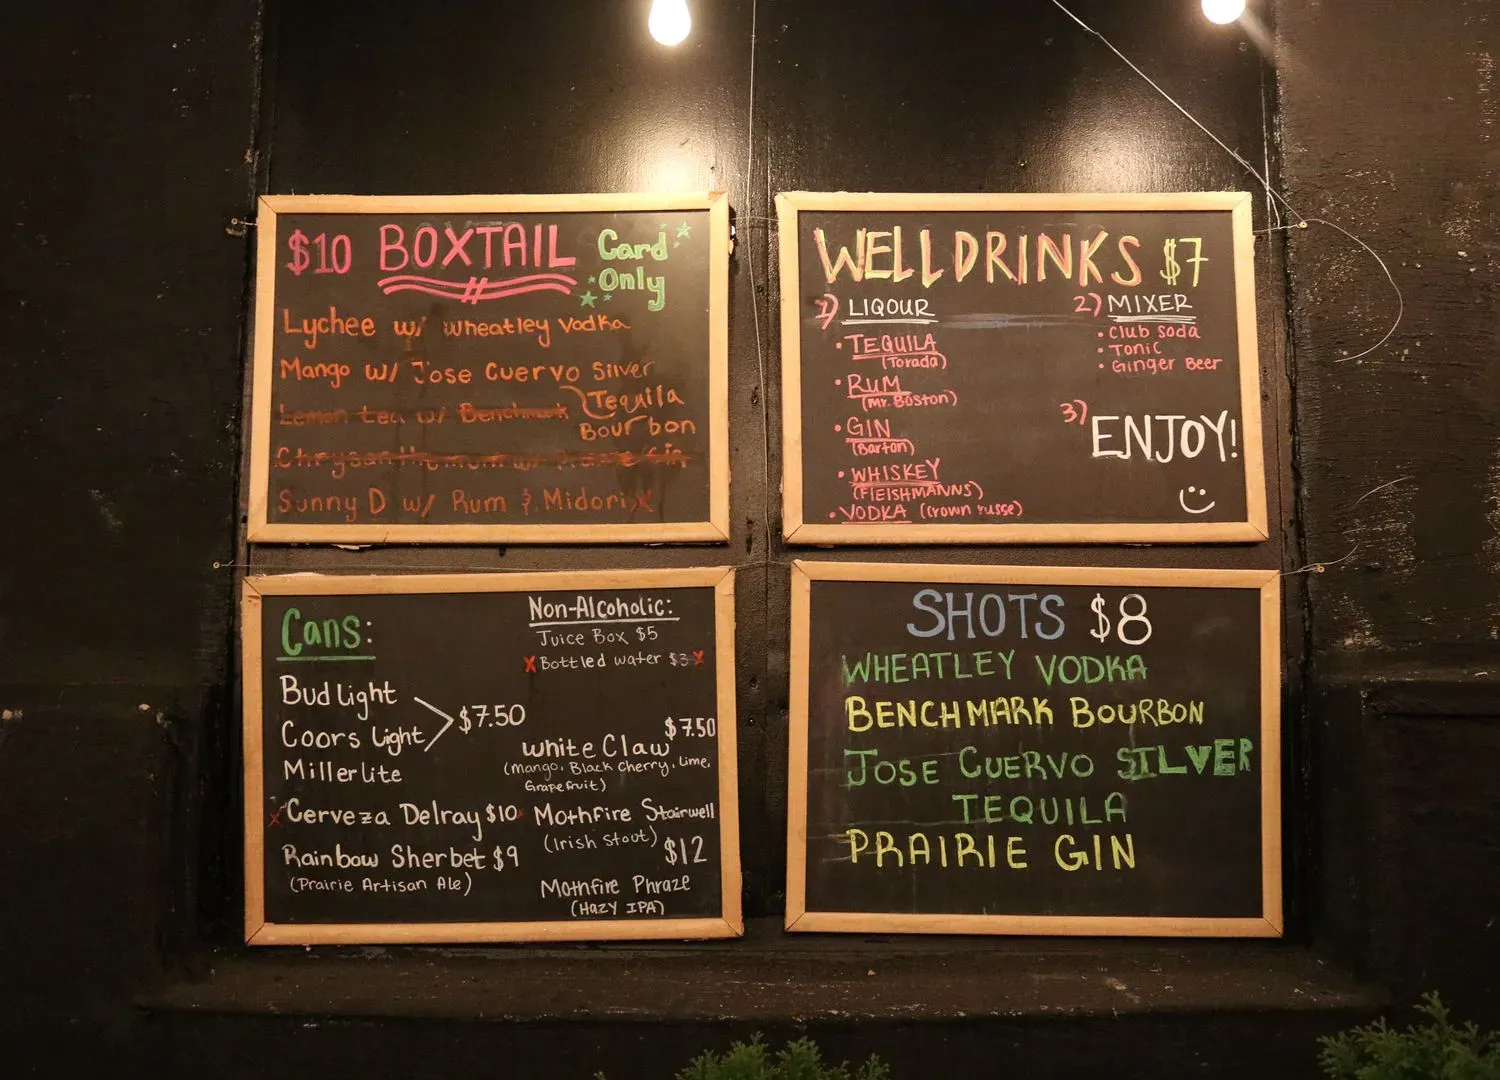 $10 BOXTAIL
Card
Only
Lychee w/ Wheatley Vodka
Mango w/ Jose Cuervo Silver
Tequila
Lemon tea w/ Benchmark
Bourbon
Chrysanthemum w/ Prairie Gin
Sunny D w/ Rum & Midori x
WELL DRINKS $7
1) LIQOUR
• TEQUILA
(Torada)
• RUM
(Mr. Boston)
• GIN
(Barton)
• WHISKEY
(FlEISHMANNS)
• VODKA (crown russe)
2) MIXER
• Club Soda
• Tonic
• Ginger Beer
3) ENJOY!
Cans:
Bud Light
Coors Light
Miller Lite
$7.50
x Cerveza Delray $10 x
Rainbow Sherbet $9
(Prairie Artisan Ale)
Non-Alcoholic:
Juice Box $5
x Bottled water $3 x
$7.50
White Claw
(Mango, Black Cherry, Lime,
Grapefruit)
Mothfire Stairwell
(Irish Stout)
$12
Mothfire Phraze
(Hazy IPA)
SHOTS $8
WHEATLEY VODKA
BENCHMARK BOURBON
JOSE CUERVO SILVER
TEQUILA
PRAIRIE GIN